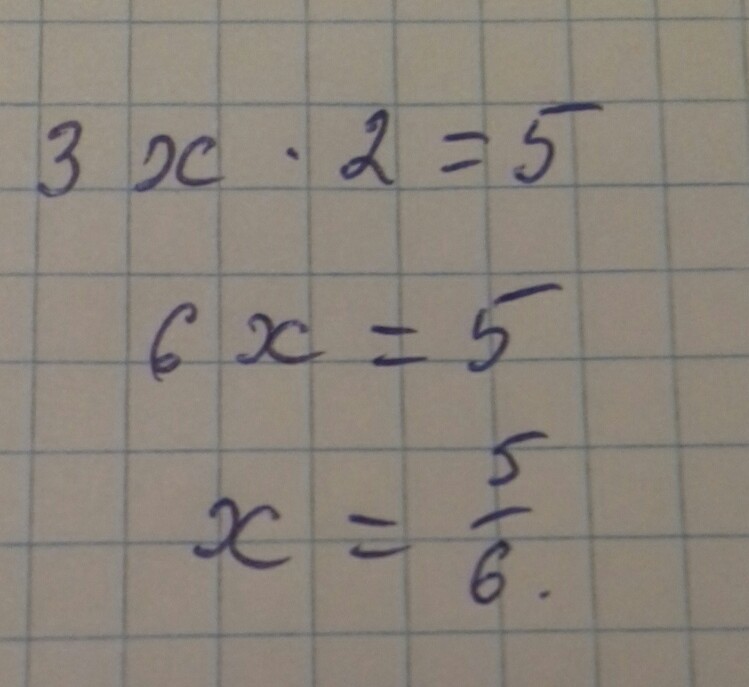 3 x · 2 = 5
6 x = 5
x = 5/6.